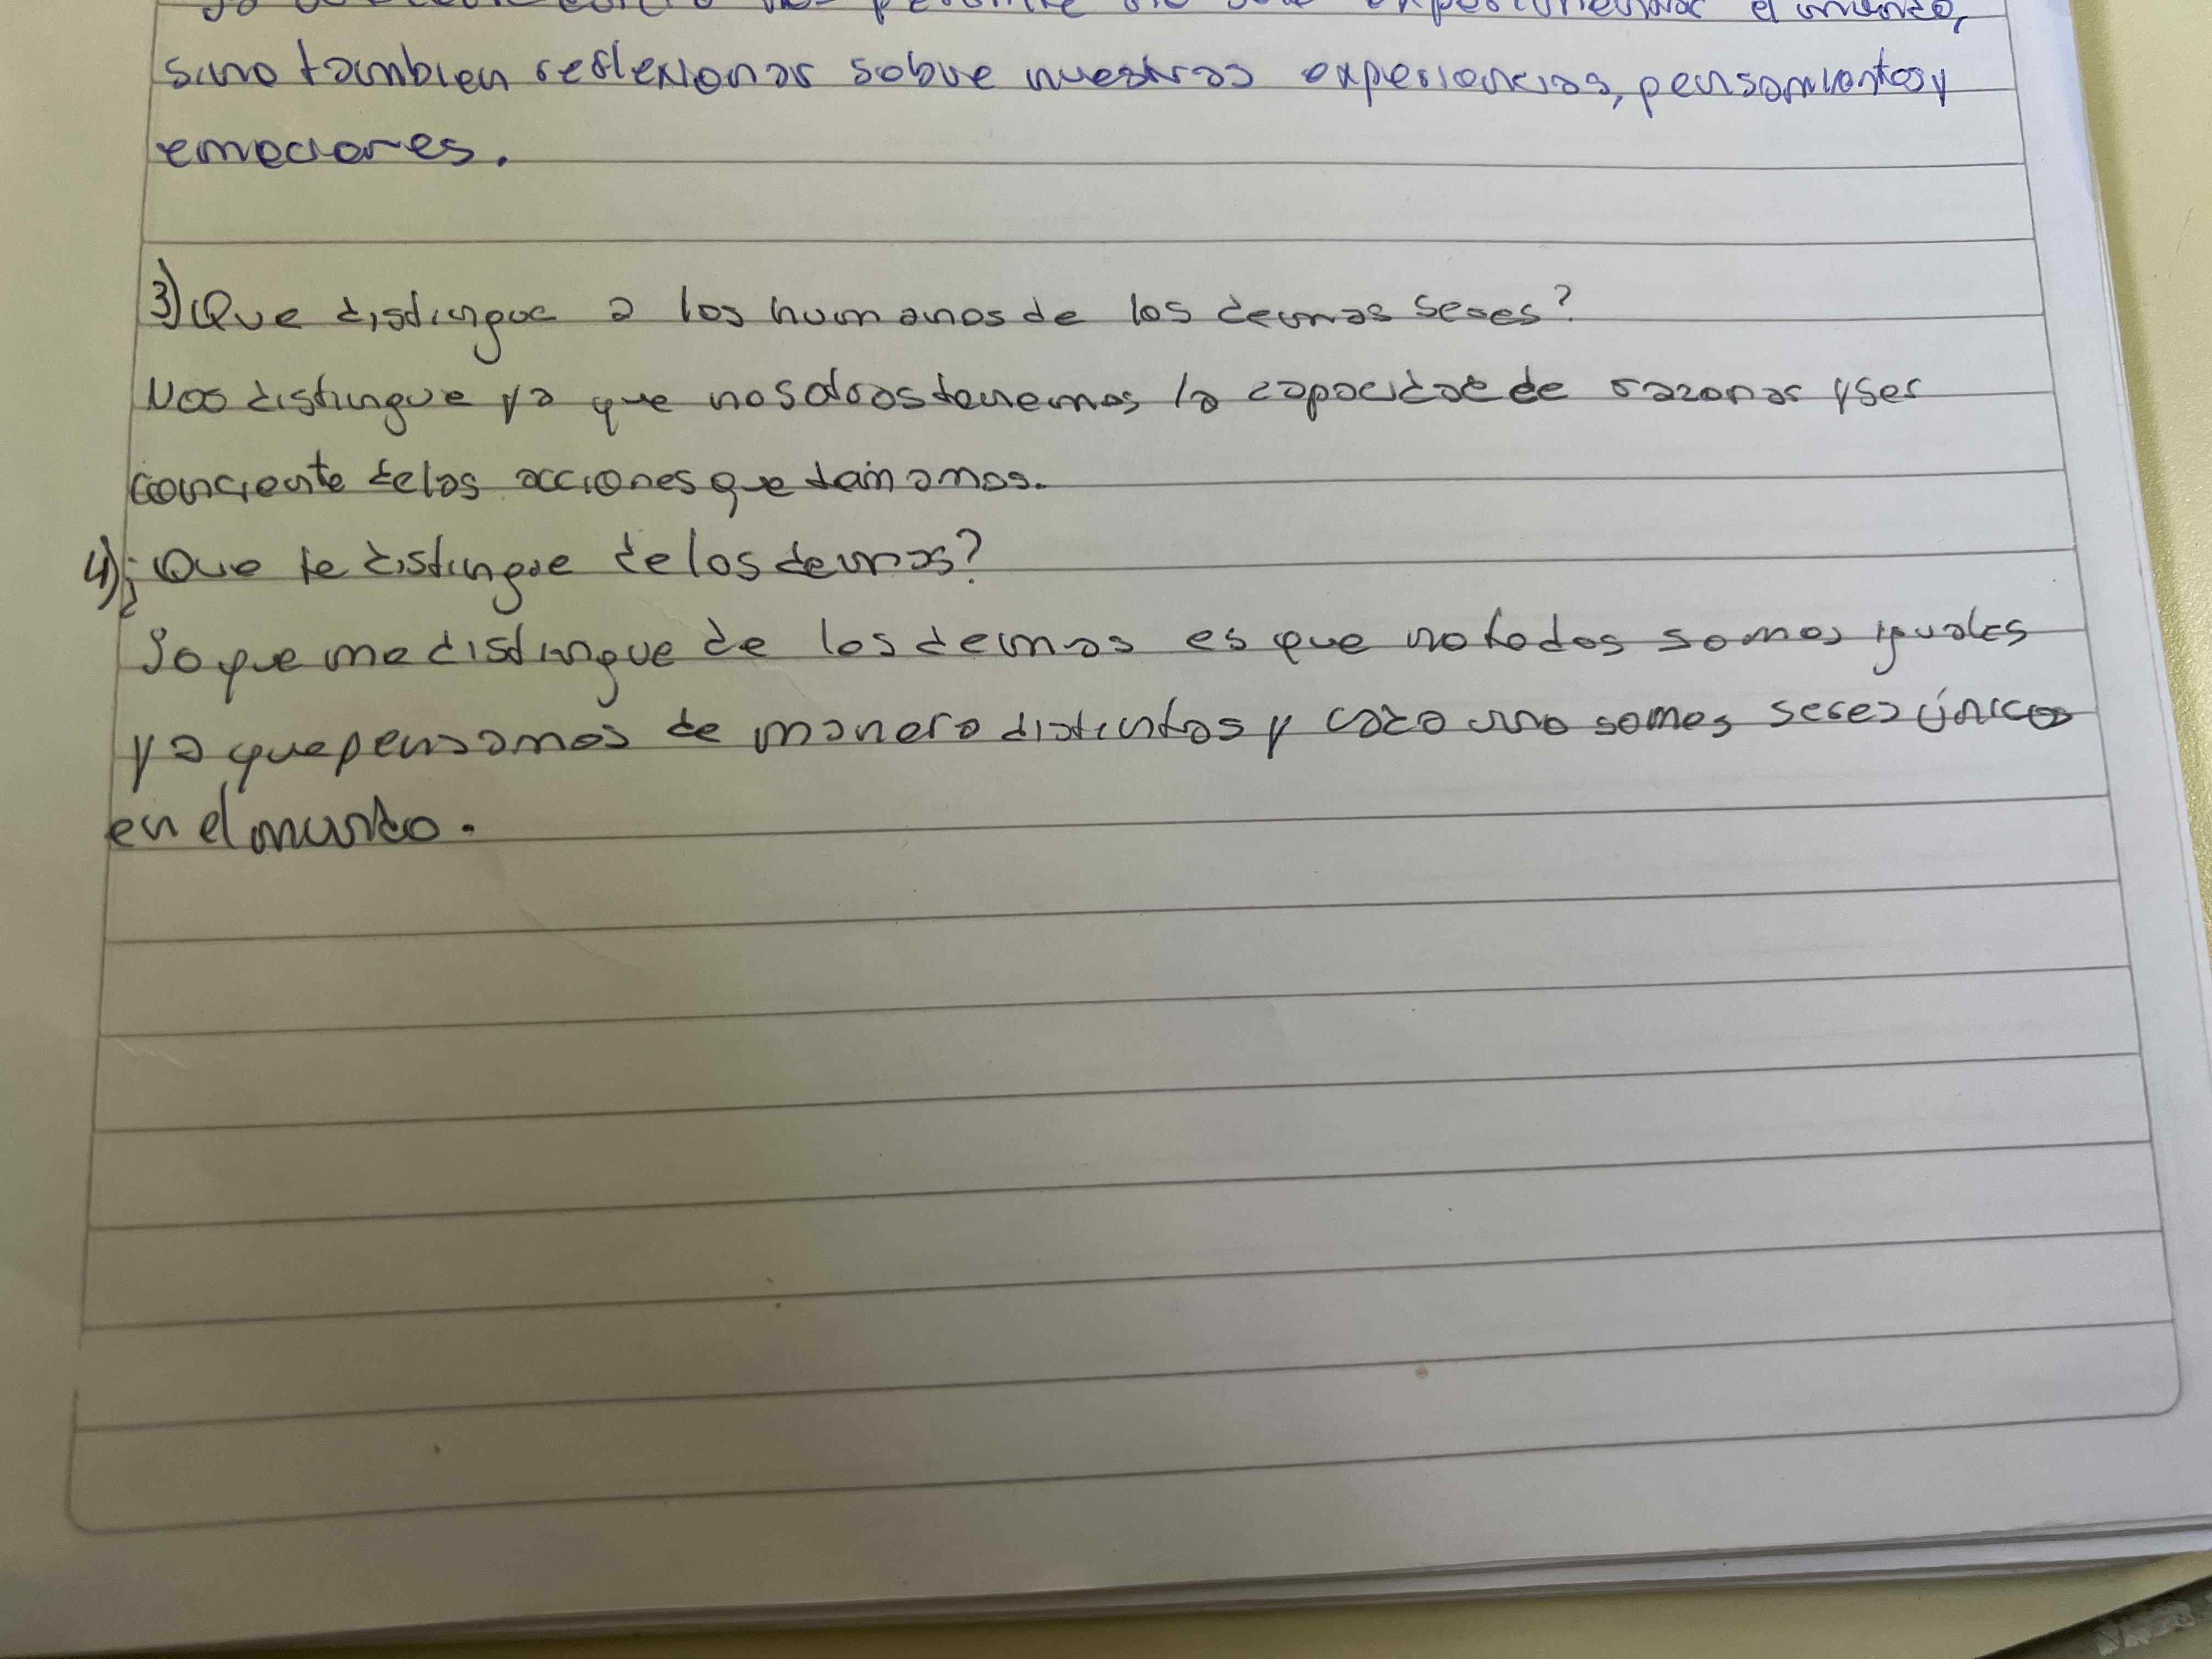 nos permite no solo experimentar el mundo,
sino tambien reflexionar sobre nuestras experiencias, pensamientos y
emociones.
3) Que distingue a los humanos de los demas seres?
Nos distingue ya que nosotros tenemos la capacidad de razonar y ser
conciente de las acciones que tomamos.
4) ¿Que te distingue de los demas?
Lo que me distingue de los demas es que no todos somos iguales
ya que pensamos de manera distintas y cada uno somos seres únicos
en el mundo.